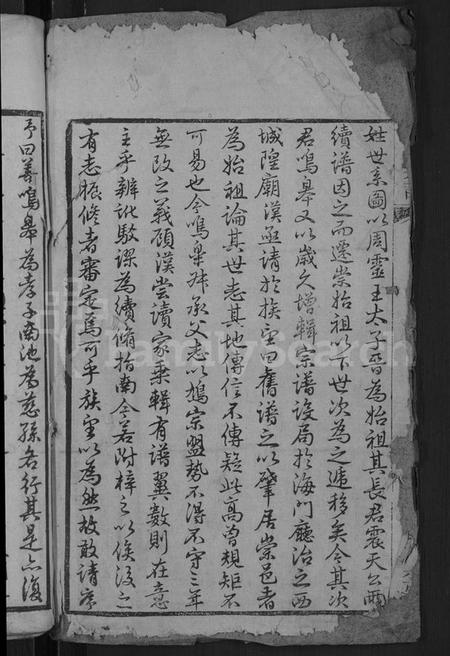 姓世系圖以周靈王太子晉為始祖其長君震天公兩
續譜因之而遷崇始祖以下世次為之遞移矣今其次
君鳴皋又以歲久增輯宗譜設局於海門廳治之西
城隍廟漢亟請於族望曰舊譜之以肇居崇邑者
為始祖論其世志其地傳信不傳疑此高曾規矩不
可易也今鳴皋丼承父志以鳩宗盟勢不得不守三年
無改之義顧漢嘗讀家乘輯有譜翼數則在意
主乎辨訛駁謬為續脩指南今若附梓之以俟後之
有志振修者審定焉可乎族望以為然故敢請序
予曰善鳴皋為孝子南池為慈孫各行其是亦復
FamilySearch